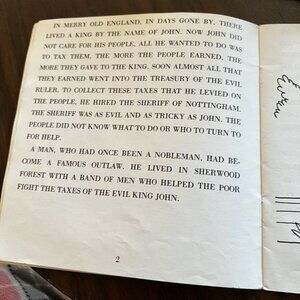 IN MERRY OLD ENGLAND, IN DAYS GONE BY, THERE
LIVED A KING BY THE NAME OF JOHN. NOW JOHN DID
NOT CARE FOR HIS PEOPLE, ALL HE WANTED TO DO WAS
TO TAX THEM. THE MORE THE PEOPLE EARNED, THE
MORE THEY GAVE TO THE KING. SOON ALMOST ALL THAT
THEY EARNED WENT INTO THE TREASURY OF THE EVIL
RULER. TO COLLECT THESE TAXES THAT HE LEVIED ON
THE PEOPLE, HE HIRED THE SHERIFF OF NOTTINGHAM.
THE SHERIFF WAS AS EVIL AND AS TRICKY AS JOHN. THE
PEOPLE DID NOT KNOW WHAT TO DO OR WHO TO TURN TO
FOR HELP.
A MAN, WHO HAD ONCE BEEN A NOBLEMAN, HAD BE-
COME A FAMOUS OUTLAW. HE LIVED IN SHERWOOD
FOREST WITH A BAND OF MEN WHO HELPED THE POOR
FIGHT THE TAXES OF THE EVIL KING JOHN.
2